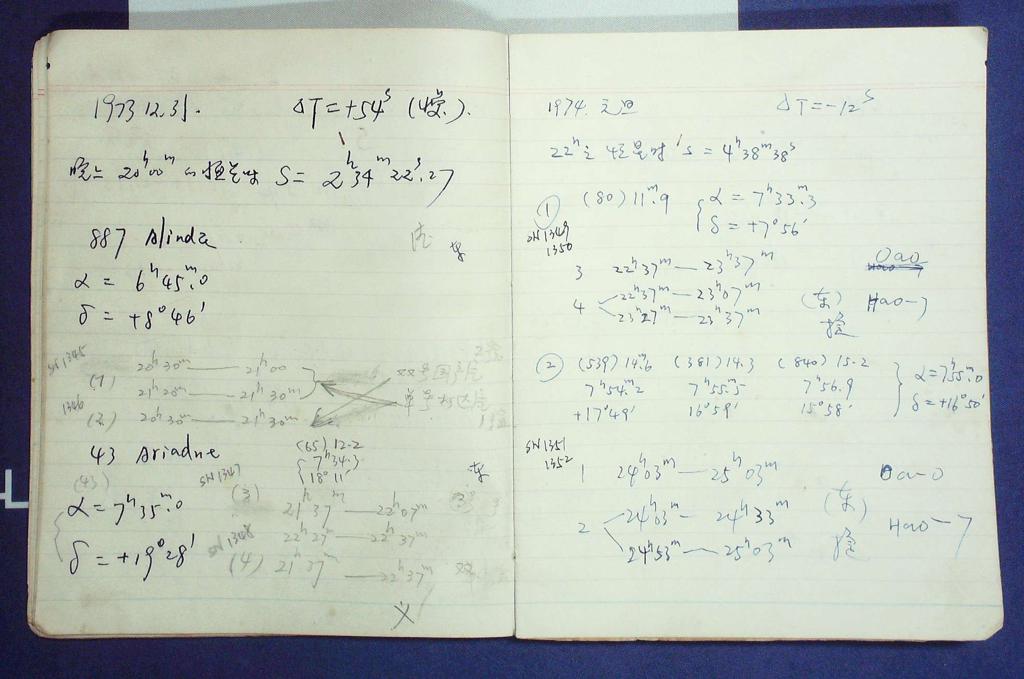 1973.12.31. ΔT=+54ˢ
晚上 20ʰ00ᵐ 的恒星时 S = 2ʰ34ᵐ22ˢ.27
887 Alinda
α = 6ʰ45ᵐ.0
δ = +8°46′
SN 1345
(1) 20ʰ30ᵐ — 21ʰ00
21ʰ20ᵐ — 21ʰ30ᵐ
1346
(2) 20ʰ30ᵐ — 21ʰ30ᵐ
43 Ariadne
(65) 12.2
7ʰ34.3
18°11′
(43)
SN 1347
α = 7ʰ35ᵐ.0
(3) 21ʰ37ᵐ — 22ʰ07ᵐ
22ʰ27ᵐ — 22ʰ37ᵐ
δ = +19°28′
SN 1348
(4) 21ʰ37ᵐ — 22ʰ37ᵐ
1974. 元旦 ΔT=-12ˢ
22ʰ 恒星时 S = 4ʰ38ᵐ38ˢ
① (80) 11ᵐ.9 α = 7ʰ33ᵐ.3
δ = +7°56′
SN 1349
1350
3 22ʰ37ᵐ — 23ʰ37ᵐ Oao
4 22ʰ37ᵐ — 23ʰ07ᵐ (东) Hao-7
23ʰ27ᵐ — 23ʰ37ᵐ
② (539) 14ᵐ.6 (381) 14.3 (840) 15.2
7ʰ54ᵐ.2 7ʰ55ᵐ.5 7ʰ56.9 α=7ʰ55ᵐ.0
+17°49′ 16°59′ 15°58′ δ=+16°50′
SN 1351
1352
1 24ʰ03ᵐ — 25ʰ03ᵐ Oao-0
2 24ʰ03ᵐ — 24ʰ33ᵐ (东) Hao-7
24ʰ53ᵐ — 25ʰ03ᵐ